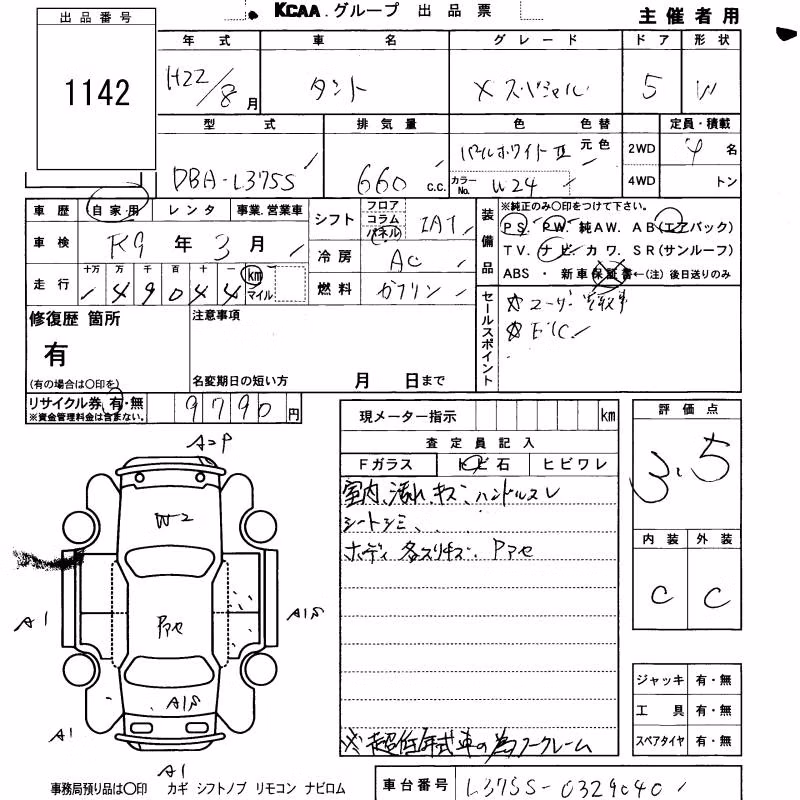 KCAA. グループ 出品票
主催者用
出品番号
1142
年式 車名 グレード ドア 形状
H22/8月 タント Xスペシャル 5 W
型式 排気量 色 色替 定員・積載
DBA-L375S 660 C.C. パールホワイトⅢ 元色 2WD 4 名
カラーNo. W24 4WD トン
車歴 自家用 レンタ 事業.営業車
車検 R9年3月
走行 十万 万 千 百 十 一 km マイル
149044
シフト フロア コラム パネル IAT
冷房 AC
燃料 ガソリン
装備品
※純正のみ〇印をつけて下さい。
PS. PW. 純AW. AB(エアバック)
TV. ナビ カワ. SR(サンルーフ)
ABS ・ 新車保証書←(注) 後日送りのみ
セールスポイント
☆ユーザー買取車
☆ETC
修復歴 箇所
有
(有の場合は〇印を)
注意事項
名変期日の短い方 月 日まで
リサイクル券 有・無 9790円
※資金管理料金は含まない。
現メーター指示 km
査定員記入
Fガラス トビ石 ヒビワレ
室内、汚れ、キズ、ハンドルスレ
シートシミ、
ボディ各スリキズ、Pアセ
※超低年式車の為ノークレーム
評価点
3.5
内装 外装
C C
ジャッキ 有・無
工具 有・無
スペアタイヤ 有・無
A2P
W2
A1
Pアセ
A1S
A1S
A1
A1
事務局預り品は〇印 カギ シフトノブ リモコン ナビロム
車台番号 L375S-0329040